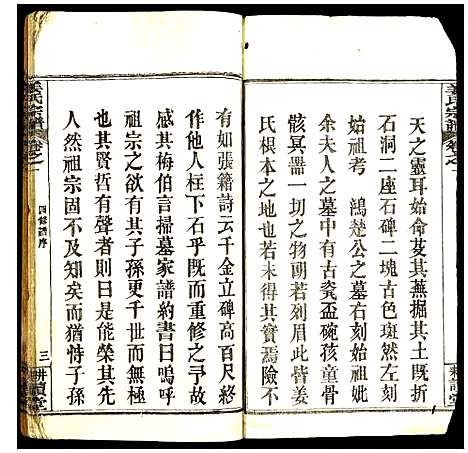 姜氏宗譜
卷之一
天之靈耳始命芟其蕪掘其土旣折
石洞二座石碑二塊古色斑然左刻
始祖考 鴻楚公之墓右刻始祖
余夫人之墓中有古瓷盃碗孩童骨
骸冥器一切之物朗若列眉此皆姜
氏根本之地也若未得其實焉險不
有如張籍詩云千金立碑高百尺終
作他人柱下石乎旣而重修之予故
感其梅伯言掃墓家譜約書曰嗚呼
祖宗之欲有其子孫更千世而無極
也其賢哲有聲者則是能榮其先
人然祖宗固不及知矣而猶恃子孫
姜氏宗譜
卷之一
四修譜序
三
耕讀堂